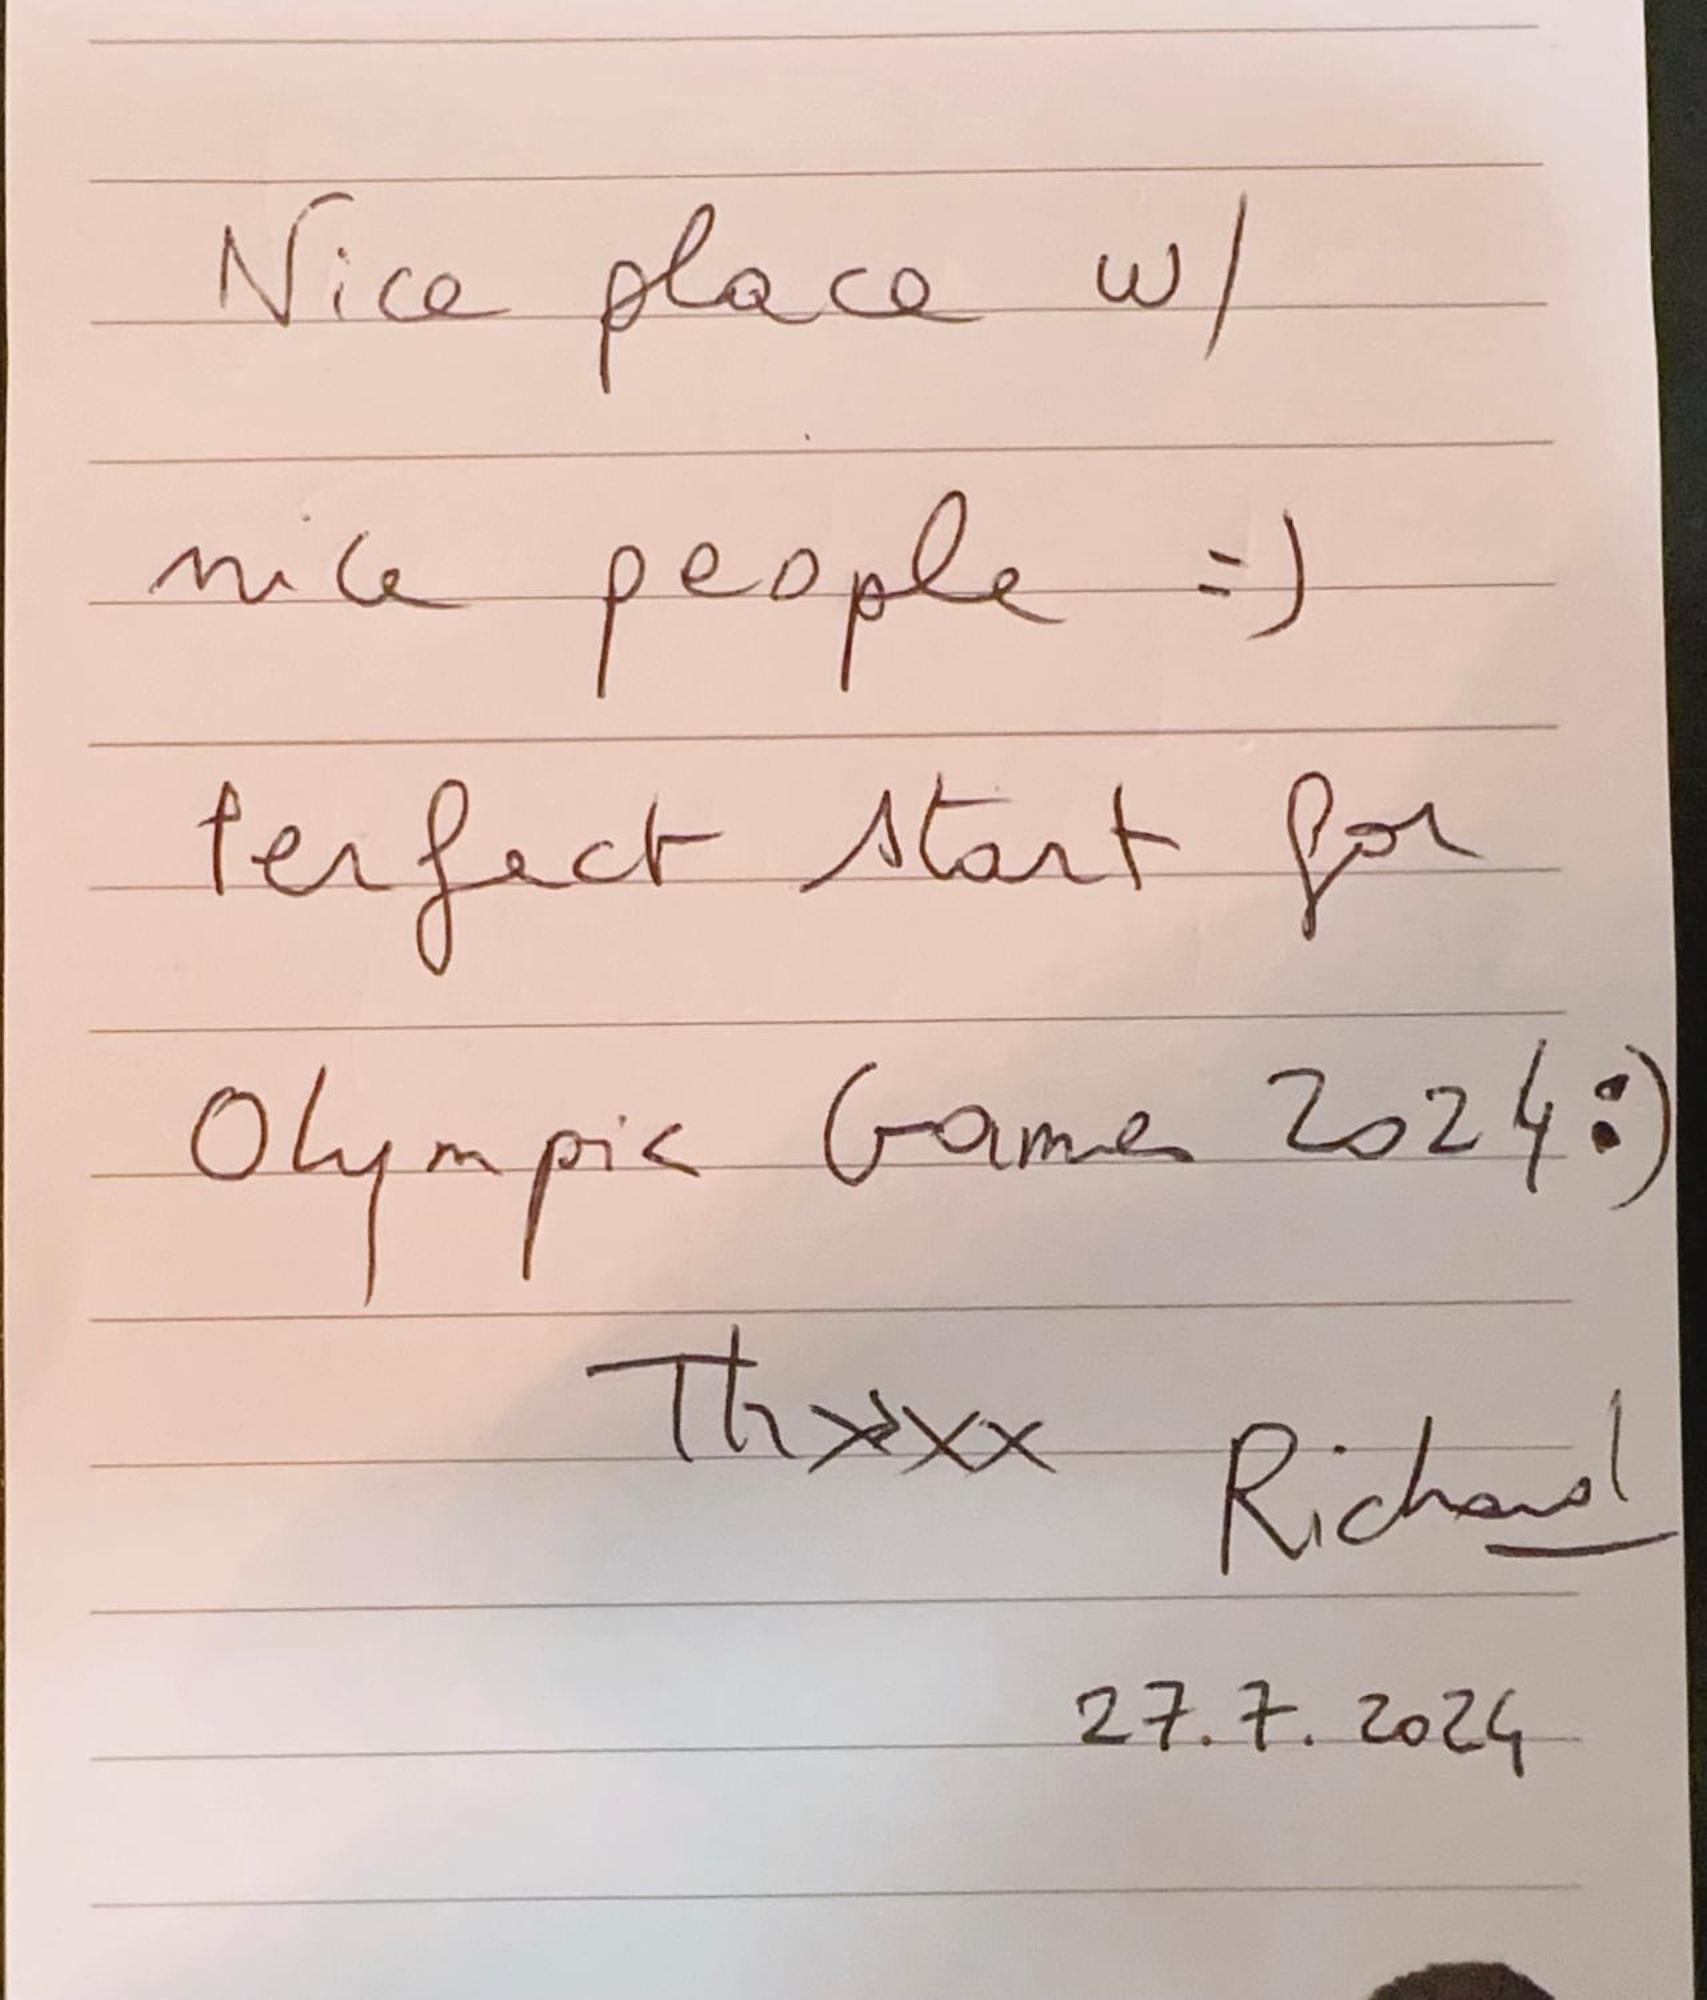 Nice place w/
nice people =)
Perfect start for
Olympic Games 2024 :)
Thxxxx
Richard
27.7.2024